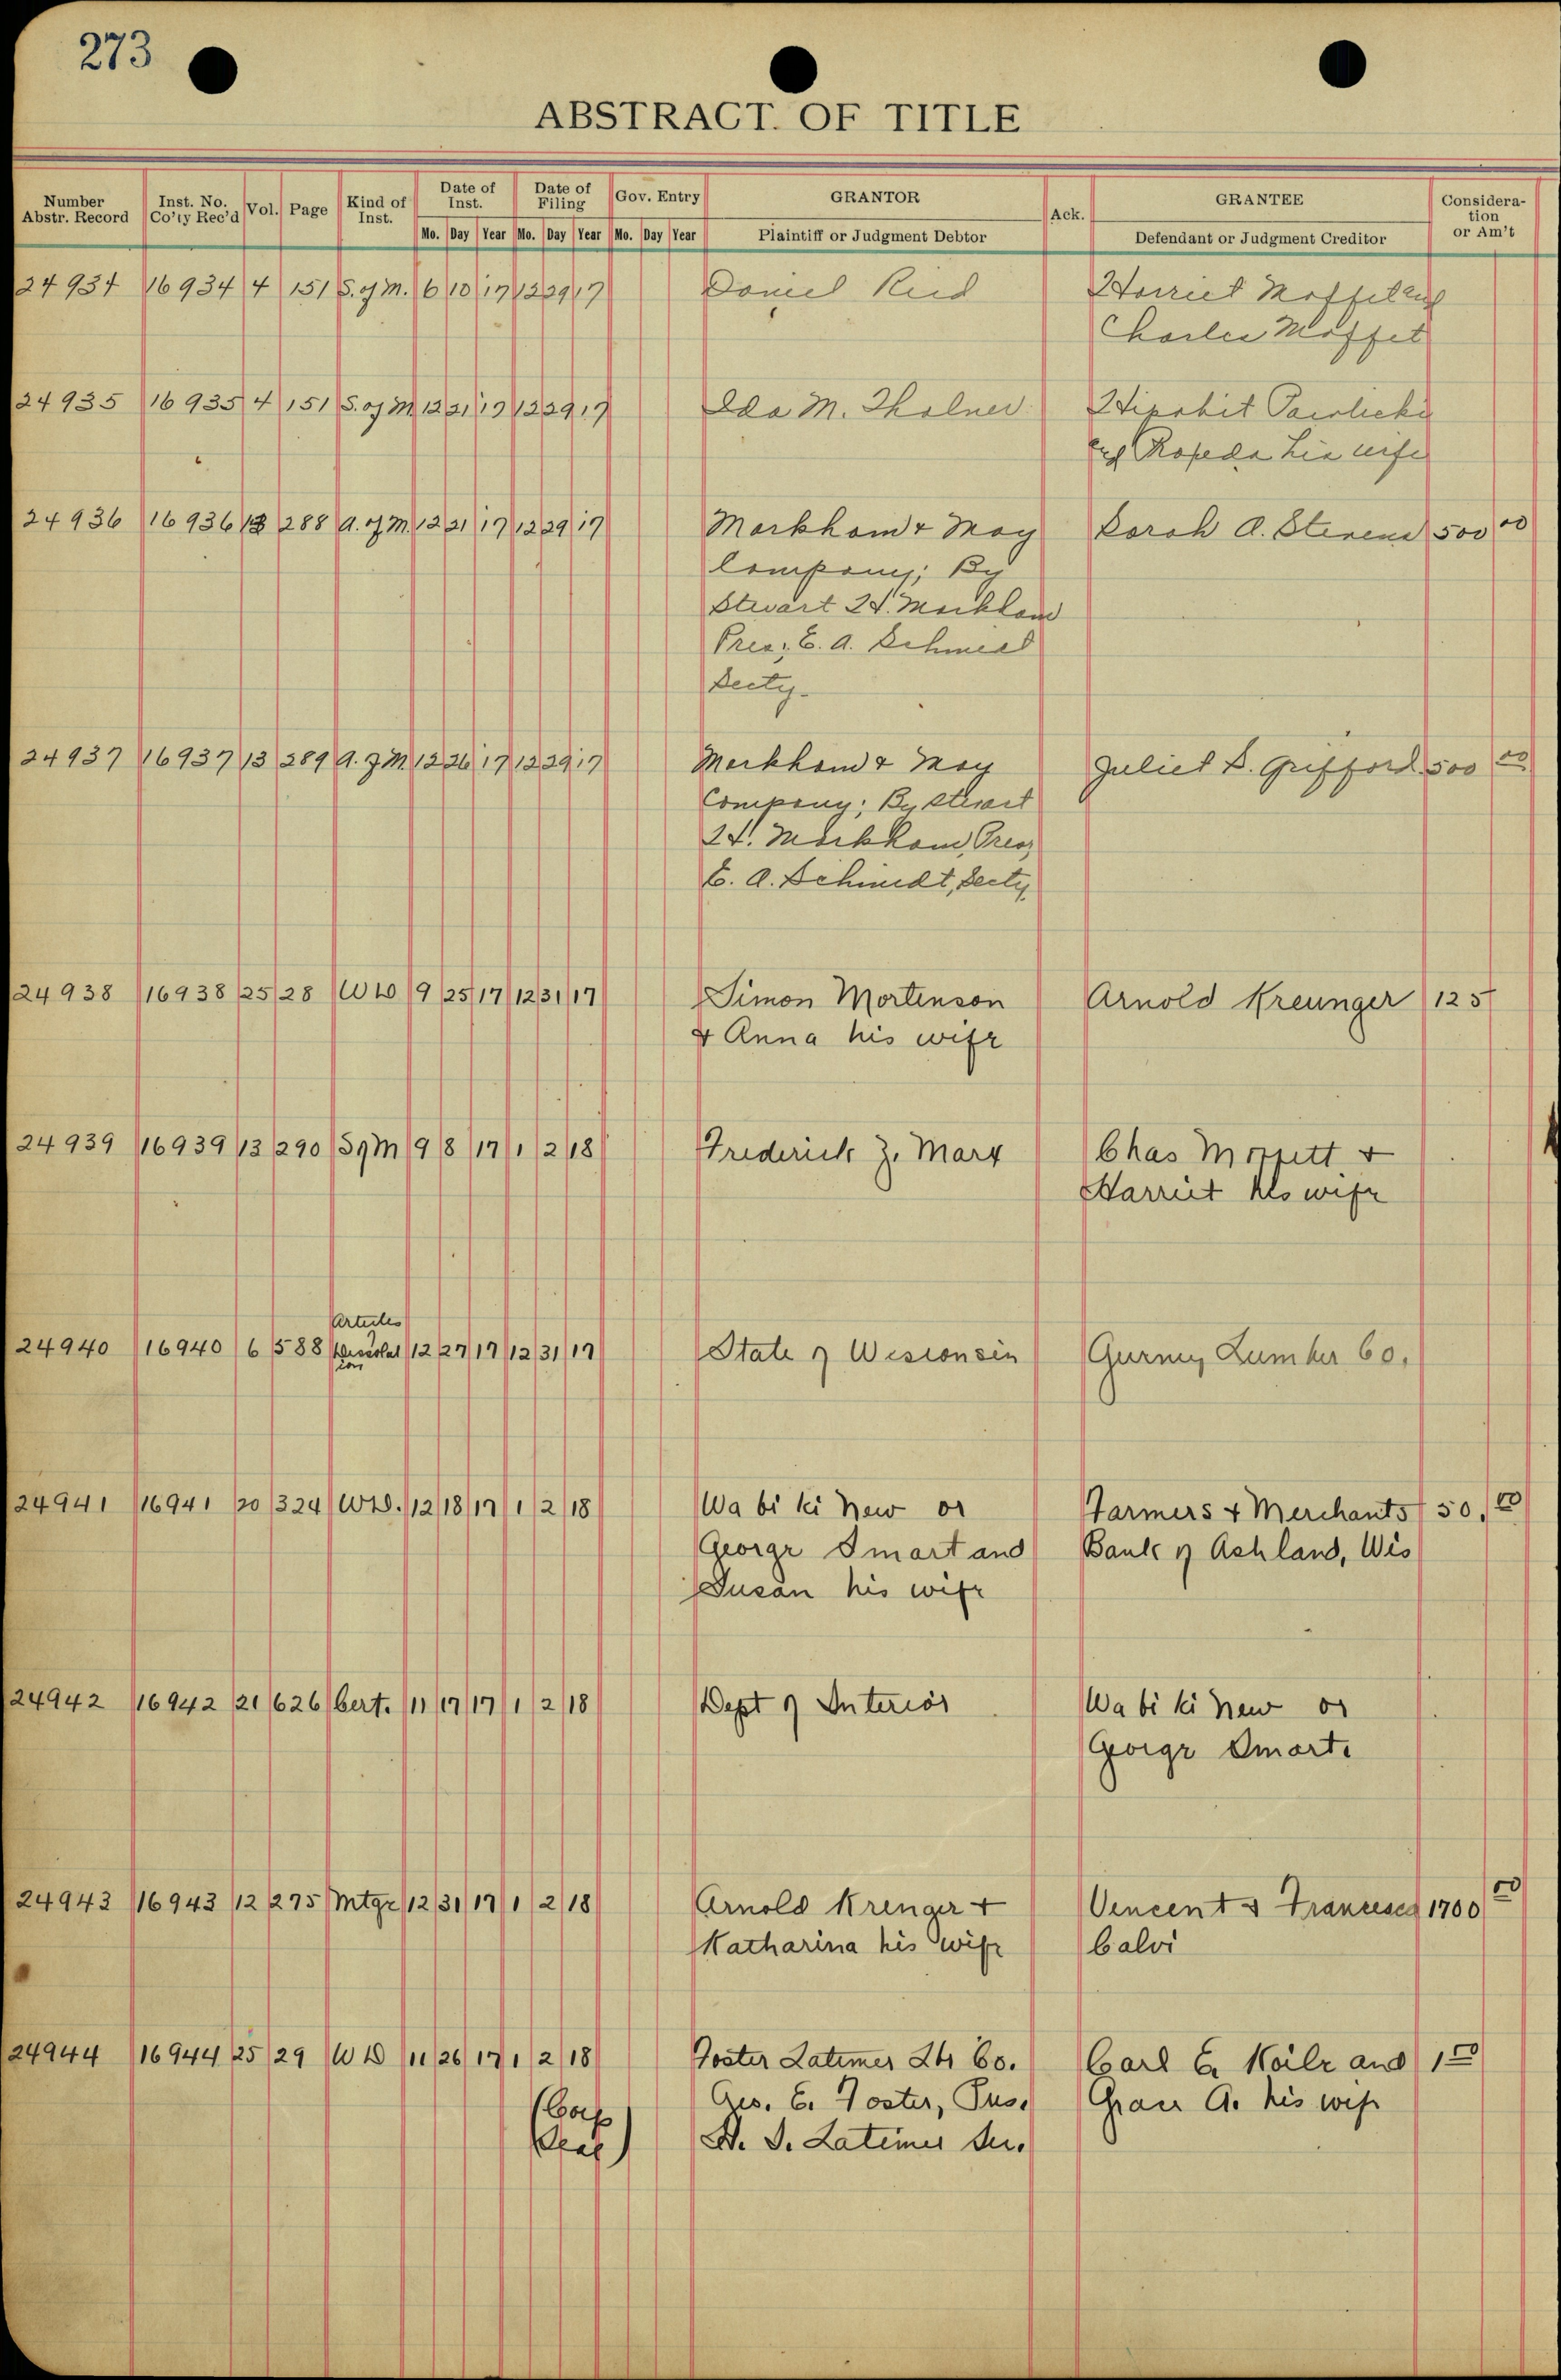 273
ABSTRACT OF TITLE
Number Abstr. Record Inst. No. Co'ty Rec'd Vol. Page Kind of Inst. Date of Inst. Date of Filing Gov. Entry GRANTOR Ack. GRANTEE Consideration or Am't
Mo. Day Year Mo. Day Year Mo. Day Year Plaintiff or Judgment Debtor Defendant or Judgment Creditor
24934 16934 4 151 S. of M. 6 10 17 12 29 17 Daniel Reid Harriet Moffet and
Charles Moffet
24935 16935 4 151 S. of M 12 21 17 12 29 17 Ida M. Tholner
and his wife
24936 16936 13 288 A. of M. 12 21 17 12 29 17 Markham & May Sarah A. Stevens 500 00
Company; By
Stewart H. Markham
Pres; E. A. Schmidt
Secty.
24937 16937 13 289 A. of M 12 26 17 12 29 17 Markham & May Juliet S. Gufford 500 00
Company; By Stewart
H. Markham, Pres;
E. A. Schmidt, Secty
24938 16938 25 28 W D 9 25 17 12 31 17 Simon Mortenson Arnold Kreunger 125
& Anna his wife
24939 16939 13 290 S of M 9 8 17 1 2 18 Frederick Z. Marx Chas Moffett &
Harriet his wife
Articles
24940 16940 6 588 of Dissolution 12 27 17 12 31 17 State of Wisconsin Gurney Lumber Co.
24941 16941 20 324 W D. 12 18 17 1 2 18 Wa bi ki new or Farmers & Merchants 50.00
George Smart and Bank of Ashland, Wis
Susan his wife
24942 16942 21 626 Cert. 11 17 17 1 2 18 Dept of Interior Wa bi ki new or
George Smart.
24943 16943 12 275 Mtge 12 31 17 1 2 18 Arnold Krenger & Vincent & Francesca 1700 00
Katharina his wife Calvi
24944 16944 25 29 W D 11 26 17 1 2 18 Foster Latimer Lbr Co. Carl E. and 1 00
(Corp Geo. E. Foster, Pres. Grace A. his wife
Seal) S. Latimer Sec.